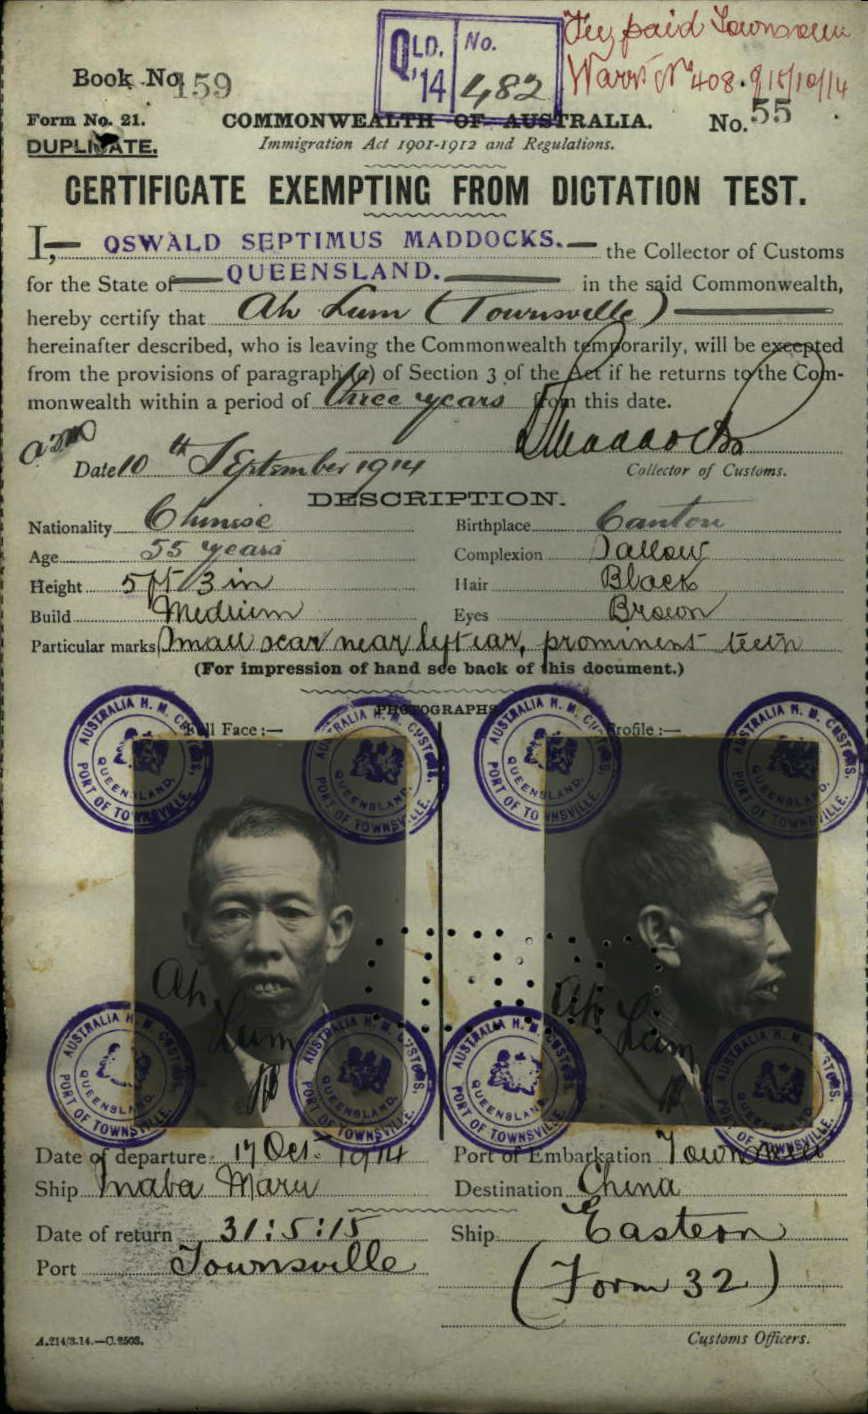 QLD. No.
'14 482
Fee paid Townsville
Warr. No 408. 9/10/14
Book No. 159
Form No. 21. COMMONWEALTH OF AUSTRALIA. No. 55
DUPLICATE. Immigration Act 1901-1912 and Regulations.
CERTIFICATE EXEMPTING FROM DICTATION TEST.
I, OSWALD SEPTIMUS MADDOCKS. the Collector of Customs
for the State of QUEENSLAND. in the said Commonwealth,
hereby certify that Ah Lum (Townsville)
hereinafter described, who is leaving the Commonwealth temporarily, will be excepted
from the provisions of paragraph (a) of Section 3 of the Act if he returns to the Com-
monwealth within a period of three years from this date.
OSMaddocks
Date 10th September 1914 Collector of Customs.
DESCRIPTION.
Nationality Chinese Birthplace Canton
Age 55 years Complexion Sallow
Height 5 ft 3 in Hair Black
Build Medium Eyes Brown
Particular marks Small scar near left ear, prominent teeth
(For impression of hand see back of this document.)
PHOTOGRAPHS
Full Face :— Profile :—
AUSTRALIA H. M. CUSTOMS. QUEENSLAND. PORT OF TOWNSVILLE.
AUSTRALIA H. M. CUSTOMS. QUEENSLAND. PORT OF TOWNSVILLE.
AUSTRALIA H. M. CUSTOMS. QUEENSLAND. PORT OF TOWNSVILLE.
AUSTRALIA H. M. CUSTOMS. QUEENSLAND. PORT OF TOWNSVILLE.
Ah Lum
Ah Lum
AUSTRALIA H. M. CUSTOMS. QUEENSLAND. PORT OF TOWNSVILLE.
AUSTRALIA H. M. CUSTOMS. QUEENSLAND. PORT OF TOWNSVILLE.
AUSTRALIA H. M. CUSTOMS. QUEENSLAND. PORT OF TOWNSVILLE.
AUSTRALIA H. M. CUSTOMS. QUEENSLAND. PORT OF TOWNSVILLE.
Date of departure: 17 Oct. 1914 Port of Embarkation Townsville
Ship Inaba Maru Destination China
Date of return 31:5:15 Ship Eastern
Port Townsville (Form 32)
A.214/3.14.—C.2503. Customs Officers.